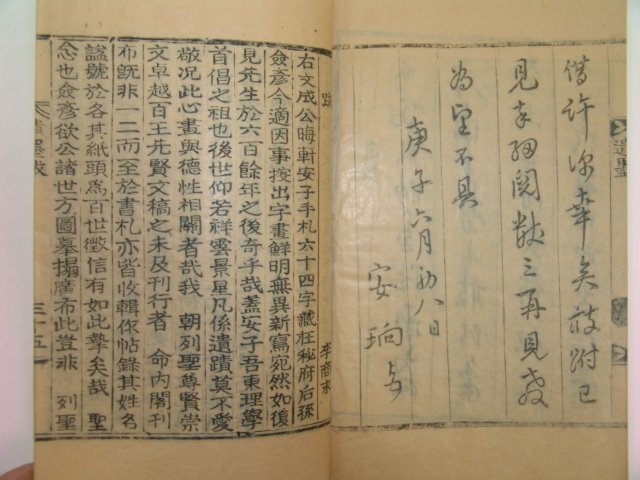 借許深幸矣跋附已
見幸細閱數三再見教
為望不具
庚子六月初八日
安珦
跋
李商永
右文成公晦軒安子手札六十四字藏在秘府后孫
僉彥今適因事搜出字畫鮮明無異新寫宛然如復
見先生於六百餘年之後奇乎哉盖安子吾東理學
首倡之祖也後世仰若祥雲景星凡係遺蹟莫不愛
敬況此心畫與德性相關者哉我 朝列聖尊賢崇
文卓越百王先賢文稿之未及刊行者 命內閣刊
布旣非一二而至於書札亦皆收輯作帖錄其姓名
諡號於各其紙頭爲百世徵信有如此摯矣哉 聖
念也僉彥欲公諸世方圖摹搨廣布此豈非 列聖
三十五